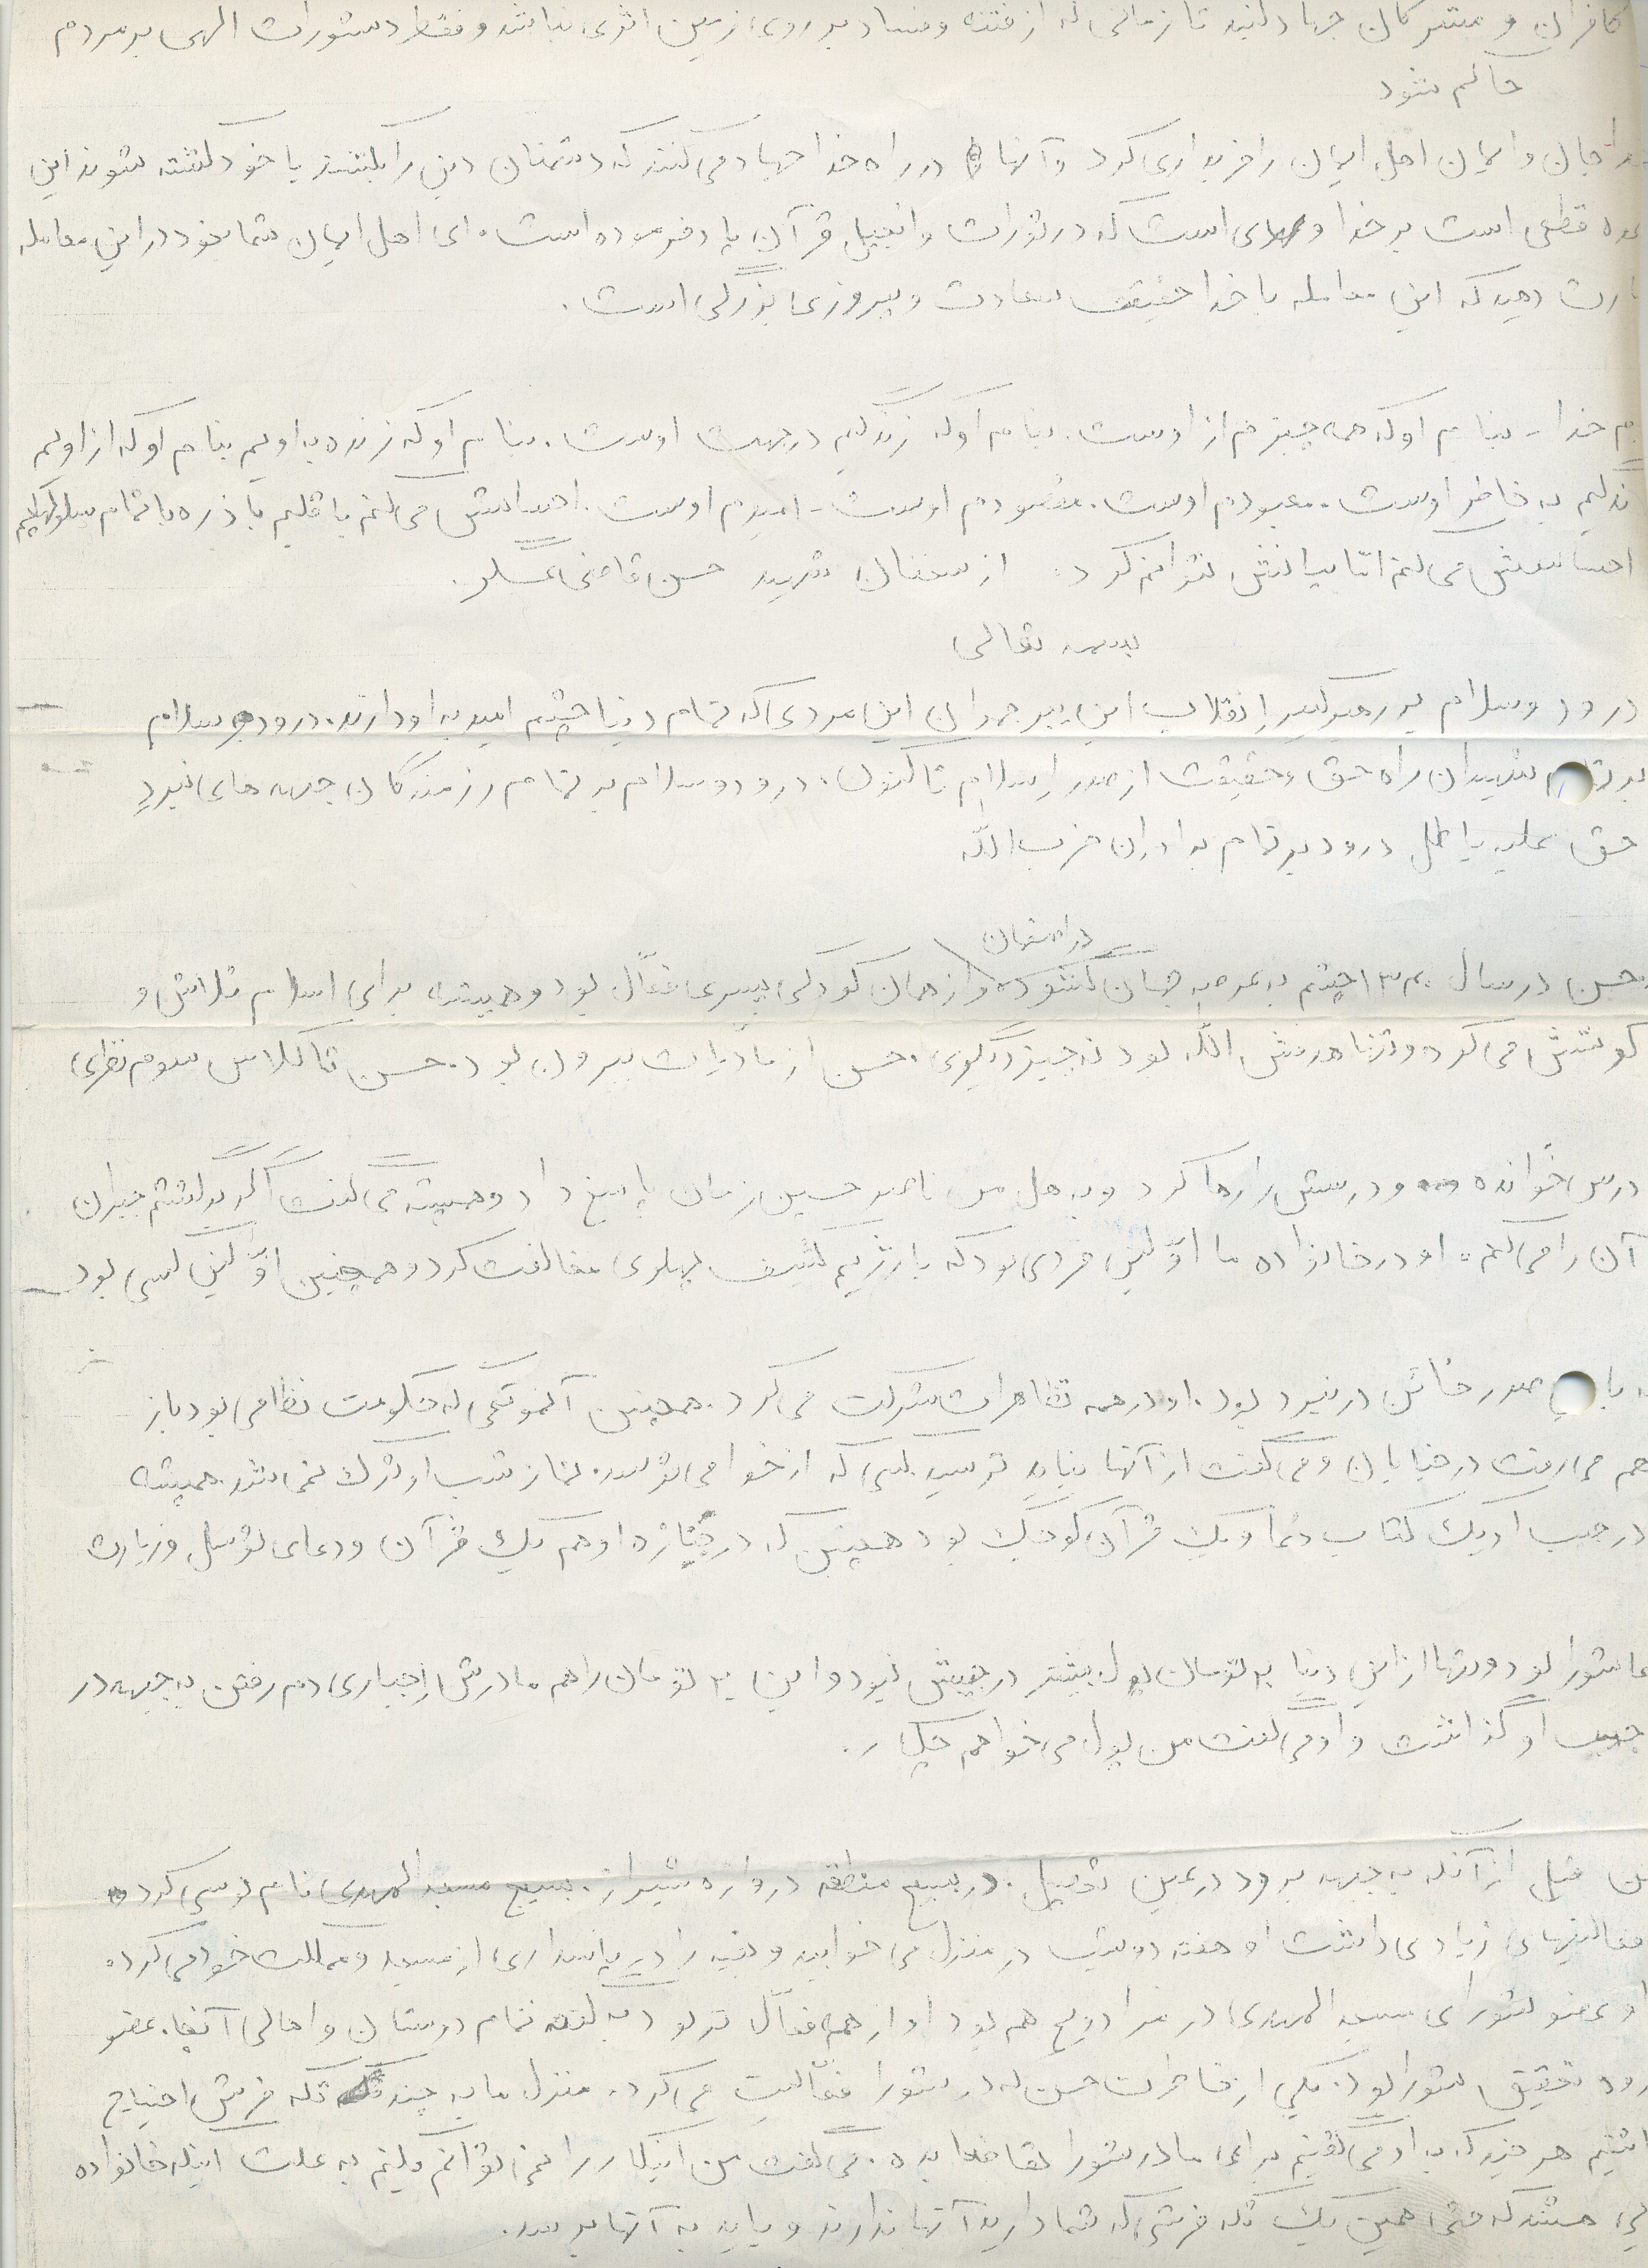 کافران و مشرکان جهاد کنید تا زمانی که از فتنه و فساد بر روی زمین اثری نباشد و فقط دستورات الهی بر مردم
حاکم شود
جان و ایمان اهل ایمان را خریداری کرد و آنها در راه خدا جهاد می کنند که دشمنان دین را بکشند یا خود کشته شوند این
قطعی است بر خدا و است که در تورات و انجیل قرآن یاد فرموده است. ای اهل ایمان شما بخود در این معامله
دهید که این معامله با خدا حقیقت سعادت و پیروزی بزرگی است.
خدا - بنام او که همه چیزم از اوست. بنام او که زندگیم در جهت اوست. بنام او که زنده به اویم بنام او که از اویم
به خاطر اوست. معبودم اوست. مقصودم اوست - امیدم اوست. احساسش می کنم با قلبم با ذره با تمام سلولهایم
احساسش می کنم امّا بیانش نتوانم کرد. از سخنان شهید حسن قاضی عسگر.
بسمه تعالی
درود و سلام بر رهبر کبیر انقلاب این پیر جماران این مردی که تمام دنیا چشم امید به او دارند. درود و سلام
بر تمام شهیدان راه حق و حقیقت از صدر اسلام تا کنون. درود و سلام بر تمام رزمندگان جبهه های نبرد
حق علیه باطل درود بر تمام برادران حزب الله
در اصفهان
حسن در سال ۱۳۴۰ چشم به عرصه جهان گشوده و از همان کودکی پسری فعّال بود و همیشه برای اسلام تلاش و
کوشش می کرد و تنها هدفش الله بود نه چیز دیگری. حسن از مادّیات بیرون بود. حسن تا کلاس سوم نظری
درس خوانده و درسش را رها کرد و به هل من ناصر حسین زمان پاسخ داد و همیشه می گفت اگر برگشتم جبران
آن را می کنم. او در خانواده ما اوّلین فردی بود که با رژیم کثیف پهلوی مخالفت کرد و همچنین اوّلین کسی بود
صدر خائن در نبرد بود. او در همه تظاهرات شرکت می کرد. همچنین آنموقعی که حکومت نظامی بود باز
هم می رفت در خیابان و می گفت از آنها نباید ترسید کسی که از خدا می ترسد. نماز شب او ترک نمی شد. همیشه
در جیب او یک کتاب دعا و یک قرآن کوچک بود همچنین که در جنازه او هم یک قرآن و دعای توسل و زیارت
عاشورا بود و تنها از این دنیا ۲۰ تومان پول بیشتر در جیبش نبود و این ۲۰ تومان را هم مادرش اجباری دم رفتن به جبهه در
جیب او گذاشت و او می گفت من پول می خواهم چکار.
قبل از آنکه به جبهه برود در عین تحصیل. در بسیج منطقه دروازه شیراز. بسیج مسجد المهدی نام نویسی کرد و
فعالیتهای زیادی داشت او هفته دو شب در منزل می خوابید و بقیه را در پاسداری از مسجد و مملکت خود می کرد.
او عضو شورای مسجد المهدی در مرداویج هم بود او از همه فعّال تر بود به گفته تمام دوستان و اهالی آنجا. عضو
تحقیق شورا بود. یکی از خاطرات حسن که در شورا فعّالیت می کرد. منزل ما به چند تکه فرش احتیاج
داشتیم هر چند که به او می گفتیم برای ما در شورا تقاضا بده. می گفت من اینکار را نمی توانم بکنم به علت اینکه خانواده
هستند که حتی همین یک تکه فرشی که شما دارید آنها ندارند و باید به آنها برسد.